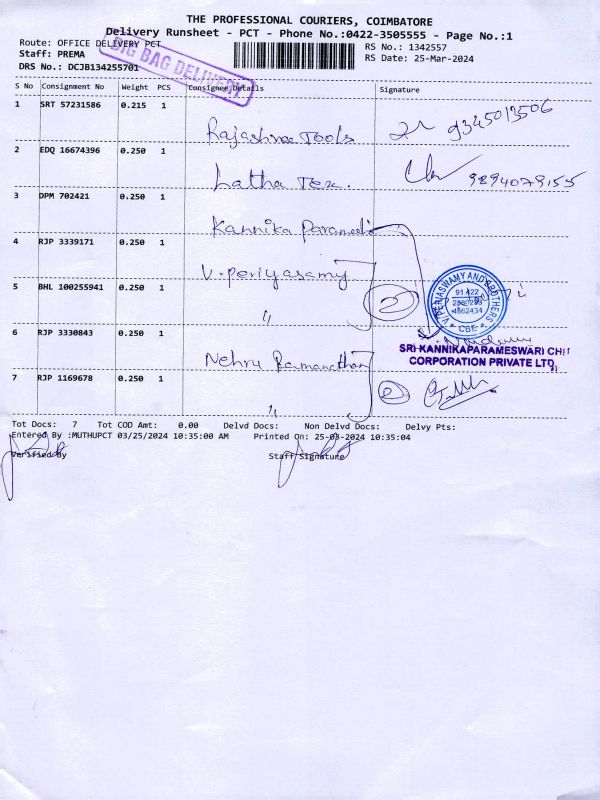 THE PROFESSIONAL COURIERS, COIMBATORE
Delivery Runsheet - PCT - Phone No.:0422-3505555 - Page No.:1
Route: OFFICE DELIVERY PCT
RS No.: 1342557
Staff: PREMA
RS Date: 25-Mar-2024
DRS No.: DCJB134255701
BIG BAG DELIVERY
S No Consignment No Weight PCS Consignee Details Signature
1 SRT 57231586 0.215 1
Rajashree Tools 9345013506
2 EDQ 16674396 0.250 1
Latha Tex. 9894079155
3 DPM 702421 0.250 1
Kannika Paramedi
4 RJP 3339171 0.250 1
V. Periyasamy
5 BHL 100255941 0.250 1
〃 2
V. PERIASWAMY AND BROTHERS
CBE
6 RJP 3330843 0.250 1
SRI KANNIKAPARAMESWARI CHIT
CORPORATION PRIVATE LTD.
Nehru Ramanathan
7 RJP 1169678 0.250 1
〃 2
Tot Docs: 7 Tot COD Amt: 0.00 Delvd Docs: Non Delvd Docs: Delvy Pts:
Entered By :MUTHUPCT 03/25/2024 10:35:00 AM Printed On: 25-03-2024 10:35:04
Verified By Staff Signature